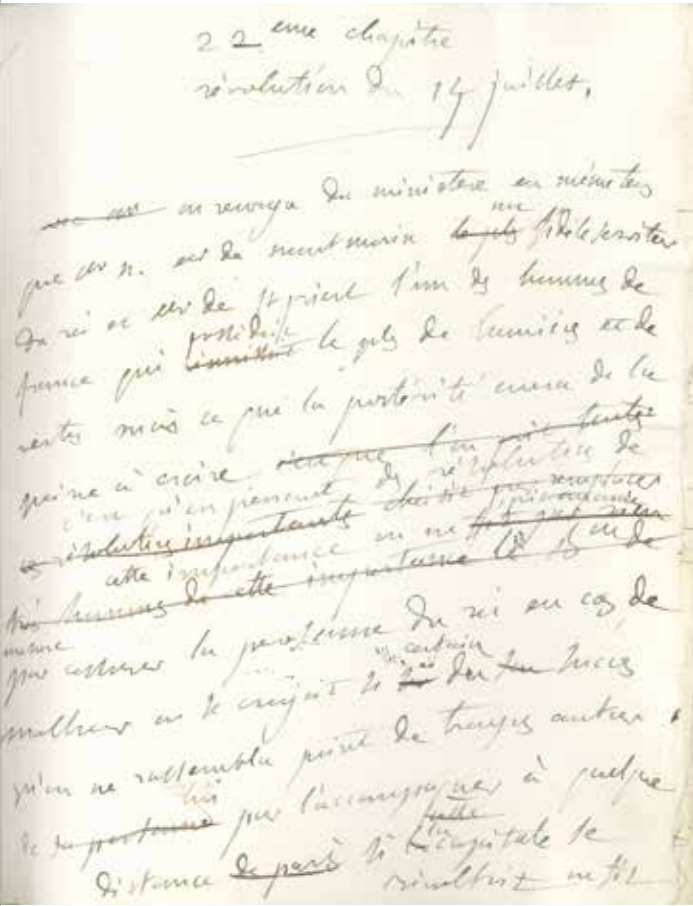 22 eme chapitre
révolution du 14 juillet.
on renvoya du ministere en même tems
que mr n. mr de montmorin le plus un fidele serviteur
du roi et mr de st priest l'un des hommes de
france qui possedoit le plus de lumières et de
vertus mais ce que la postérité aura de la
peine à croire
c'est qu'en prenant des résolutions de
ces résolutions importantes
cette importance on ne
trois hommes de cette importance
mesure
pour assurer la personne du roi en cas de
malheur on se croyoit si certain du succès
qu'on ne rassembla point de troupes autour
de lui sa personne pour l'accompagner à quelque
distance de paris si cette la capitale se
révoltoit